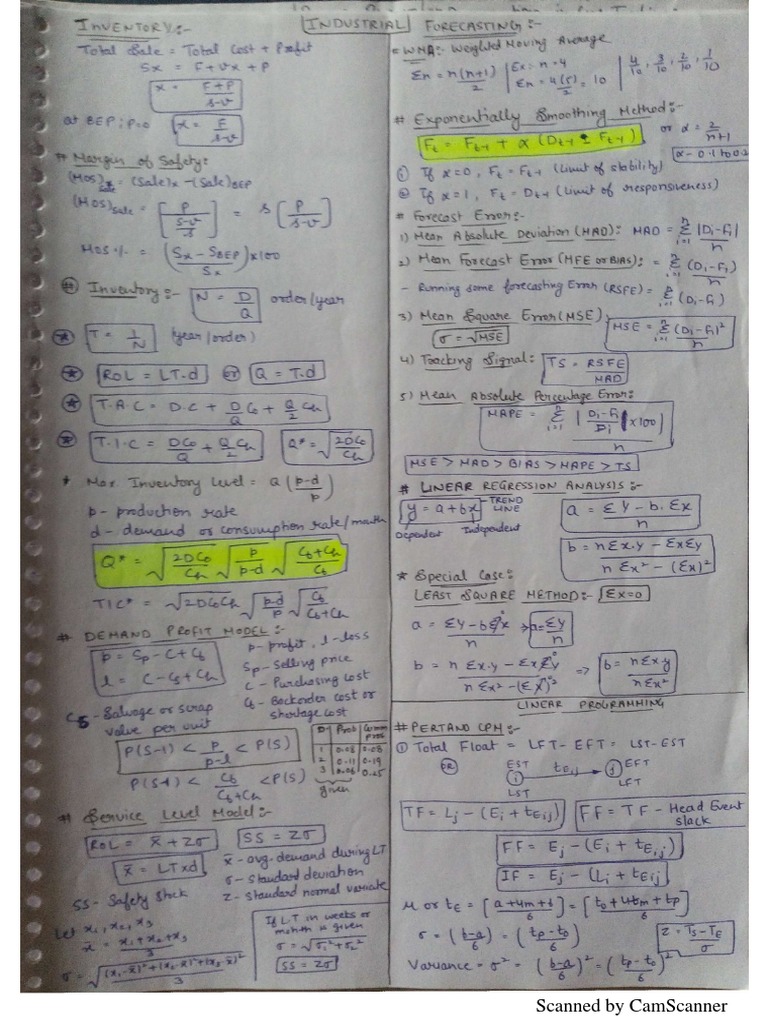 INDUSTRIAL
INVENTORY:-
Total Sale = Total Cost + Profit
Sx = F + Vx + P
x = F+P / s-v
at BEP; P=0 x = F / s-v
# Margin of Safety:-
(MOS)sale = (Sale)x - (Sale)BEP
(MOS)sale = [P / (s-v / s)] = s[P / s-v]
MOS % = (Sx - SBEP / Sx) x 100
# Inventory:- N = D/Q order/year
T = 1/N (year/order)
ROL = LT.d or Q = T.d
T.A.C = D.C + D/Q Co + Q/2 Ch
T.I.C = DCo/Q + Q/2 Ch Q* = √(2DCo/Ch)
* Max. Inventory Level = Q (p-d / p)
p- production rate
d - demand or consumption rate/month
Q* = √(2DCo/Ch) √(p/p-d) √(Cb+Ch/Cb)
TIC* = √(2DCoCh) √(p-d/p) √(Cb/Cb+Ch)
# DEMAND PROFIT MODEL:-
p = Sp - C + Cb
l = C - Cs + Ch
p- profit, l- loss
Sp - Selling price
C - Purchasing cost
Cb - Backorder cost or
shortage cost
Cs - Salvage or scrap
value per unit
P(S-1) < p / p-l < P(S)
P(S-1) < Cb / Cb+Ch < P(S)
D Prob Comm prob
1 0.08 0.08
2 0.11 0.19
3 0.06 0.25
given
# Service Level Model:-
ROL = x̄ + Zσ SS = Zσ
x̄ = LTxd
x̄ - avg. demand during LT
σ - Standard deviation
Z - Standard normal variate
SS - Safety Stock
Let x1, x2, x3
x̄ = x1+x2+x3 / 3
σ = √((x1-x̄)²+(x2-x̄)²+(x3-x̄)² / 3)
If LT in weeks or
month is given
σ = √(σ1²+σ2²)
SS = Zσ
FORECASTING:-
= WMA:- Weighted Moving Average
Σn = n(n+1) / 2
Ex:- n=4
Σn = 4(5)/2 = 10
4/10, 3/10, 2/10, 1/10
# Exponentially Smoothing Method:-
Ft = Ft-1 + α (Dt-1 - Ft-1) or α = 2 / n+1
① If α=0, Ft = Ft-1 (Limit of stability)
② If α=1, Ft = Dt-1 (Limit of responsiveness)
# Forecast Error:-
1) Mean Absolute Deviation (MAD): MAD = Σ |Di-Fi| / n
2) Mean Forecast Error (MFE or BIAS): = Σ (Di-Fi) / n
- Running some forecasting Error (RSFE) = Σ (Di-Fi)
3) Mean Square Error (MSE)
σ = √MSE MSE = Σ (Di-Fi)² / n
4) Tracking Signal: TS = RSFE / MAD
5) Mean Absolute Percentage Error:-
MAPE = Σ |Di-Fi / Di x100| / n
MSE > MAD > BIAS > MAPE > TS
# LINEAR REGRESSION ANALYSIS:-
y = a + bx TREND LINE
Dependent Independent
a = ΣY - b.Σx / n
b = nΣx.y - ΣxΣy / nΣx² - (Σx)²
* Special Case:
LEAST SQUARE METHOD:- Σx=0
a = Σy - bΣx / n => a = Σy / n
b = nΣx.y - ΣxΣy / nΣx² - (Σx)² => b = nΣxy / nΣx²
LINEAR PROGRAMMING
# PERT AND CPM:-
① Total Float = LFT - EFT = LST - EST
OR
EST tEi,j EFT
i j
LST LFT
TF = Lj - (Ei + tEij) FF = TF - Head Event
slack
FF = Ej - (Ei + tEi,j)
IF = Ej - (Li + tEij)
μ or tE = [a+4m+b / 6] = [to+4tm+tp / 6]
σ = (b-a / 6) = (tp-to / 6) Z = Ts-TE / σ
Variance = σ² = (b-a / 6)² = (tp-to / 6)²
Scanned by CamScanner